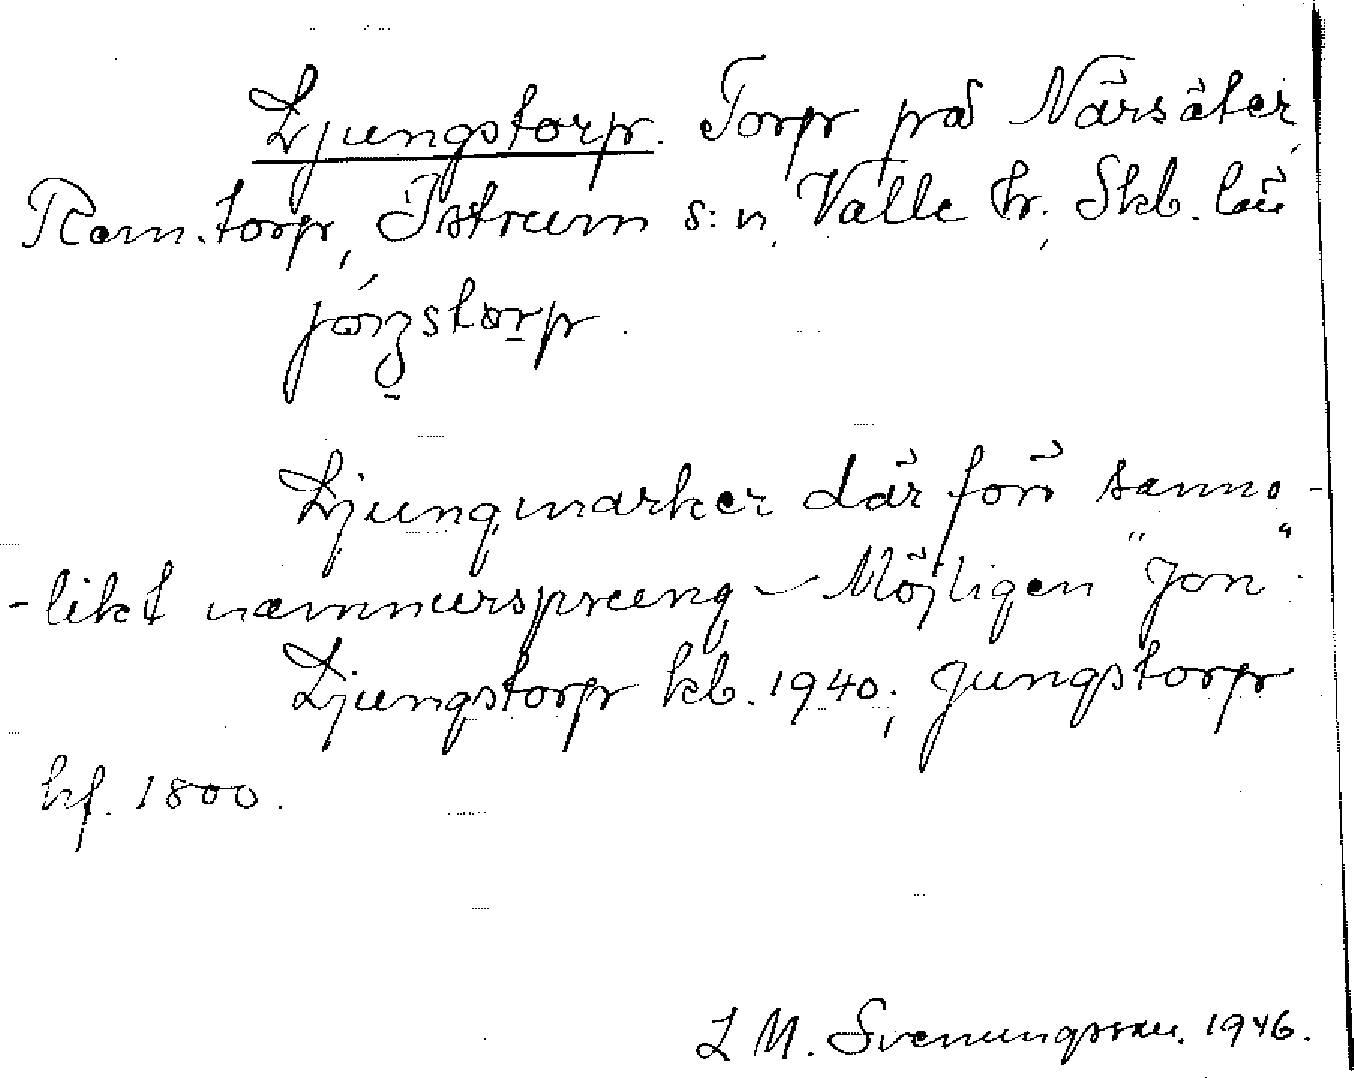 Ljungstorp. Torp på Närsäter,
Ram.torp, Istrum s:n, Valle hr, Skb. län
jóŋstorp.
Ljungmarker där förr sanno-
-likt namnursprung – Möjligen "Jon".
Ljungstorp kb. 1940; Jungstorp
hf. 1800.
L M. Svenungsson. 1946.